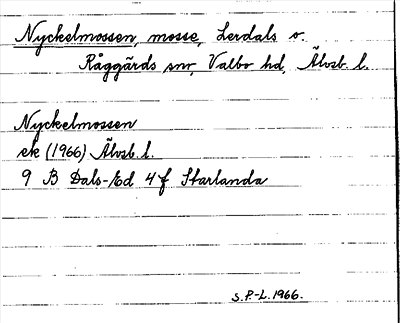 Nyckelmossen, mosse, Lerdals o.
Råggärds snr, Valbo hd, Älvsb. l.
Nyckelmossen
ek (1966) Älvsb. l.
9 B Dals-Ed 4 f Starlanda
S.P.-L. 1966.